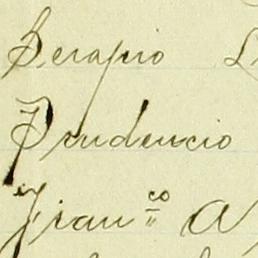 Serapio
Prudencio
Franco A